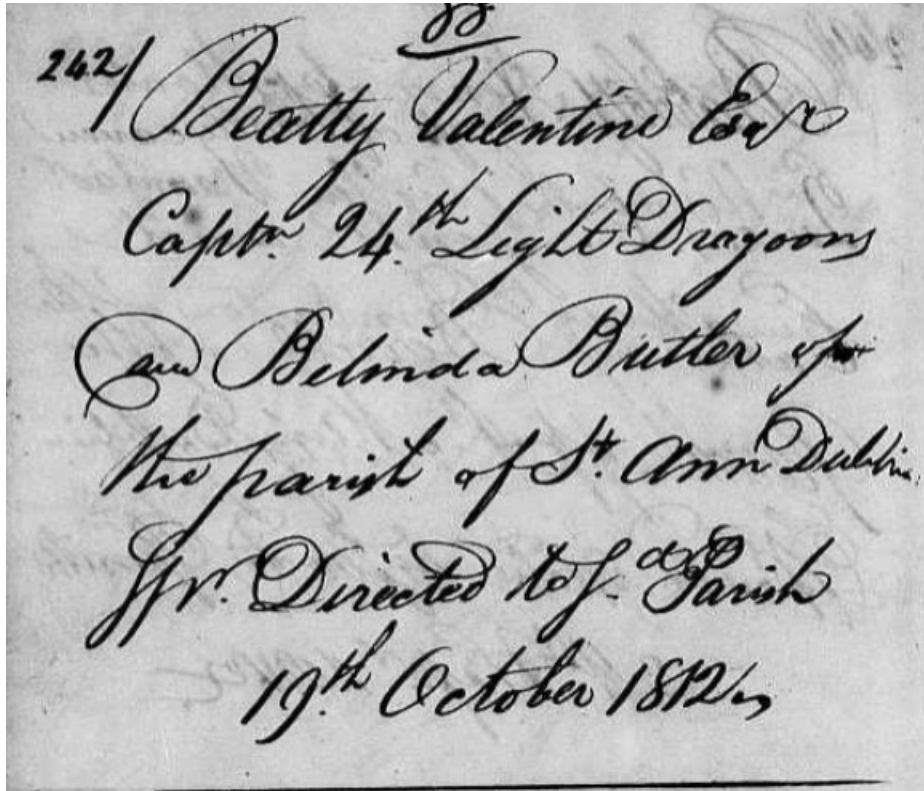 242/ Beatty Valentine Esqr
Captn. 24.th Light Dragoons
and Belinda Butler of
the parish of St. Ann Dublin.
Spr. Directed to sd. Parish
19.th October 1812